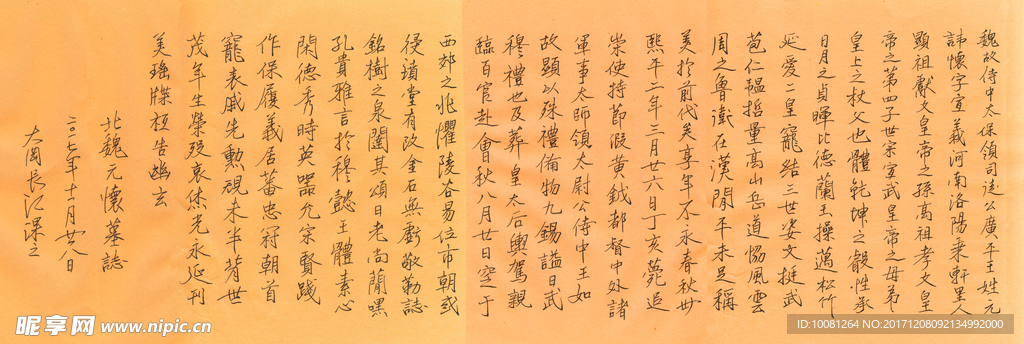 魏故侍中太保領司徒公廣平王姓元
諱懷字宣義河南洛陽乗軒里人
顯祖獻文皇帝之孫高祖孝文皇
帝之第四子世宗宣武皇帝之母弟
皇上之杖父也體乾坤之縠性承
日月之貞暉比德蘭玉操邁松竹
延愛二皇寵結三世姿文挺武
苞仁韞哲量高山岳道協風雲
周之魯衛在漢閒平未足稱
美於前代矣享年不永春秋卅
熙平二年三月廿六日丁亥薨追
崇使持節假黄鉞都督中外諸
軍事太師領太尉公侍中王如
故顯以殊禮備物九錫謚曰武
穆禮也及葬皇太后輿駕親
臨百官赴會秋八月廿日窆于
西郊之兆懼陵谷易位市朝或
侵墳堂有改金石無虧敬勒誌
銘樹之泉闥其頌曰老尚蘭嘿
孔貴雅言於穆懿王體素心
閑德秀時英器允宗賢踐
作保履義居蕃忠冠朝首
寵表戚先勳視未半背世
茂年生榮殁哀休光永延刊
美瑶牒桓告幽玄
北魏元懷墓誌
二〇一七年十一月廿八日
大周長江課之
昵享网 www.nipic.cn
ID:10081264 NO:20171208092134992000